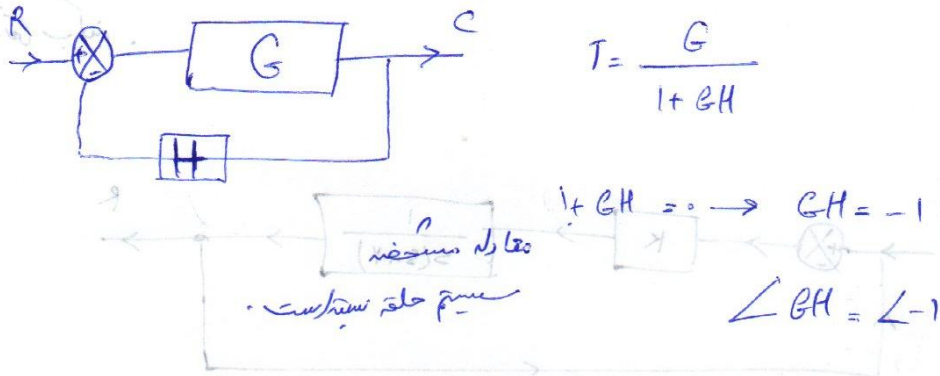 R
+
-
G
C
H
T = G / 1 + GH
1 + GH = 0 → GH = -1
معادله مشخصه
سیستم حلقه بسته است.
∠GH = ∠-1